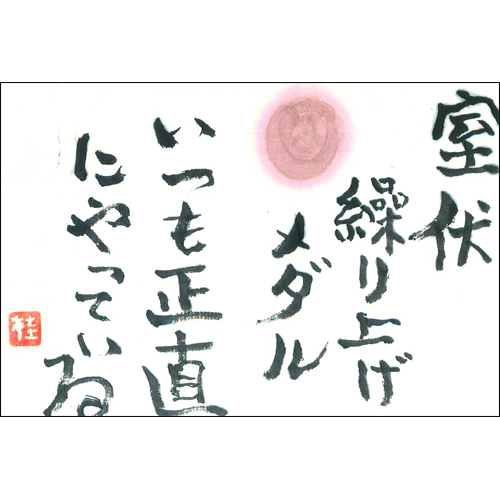 室伏
繰り上げ
メダル
いつも正直
にやっている
桂